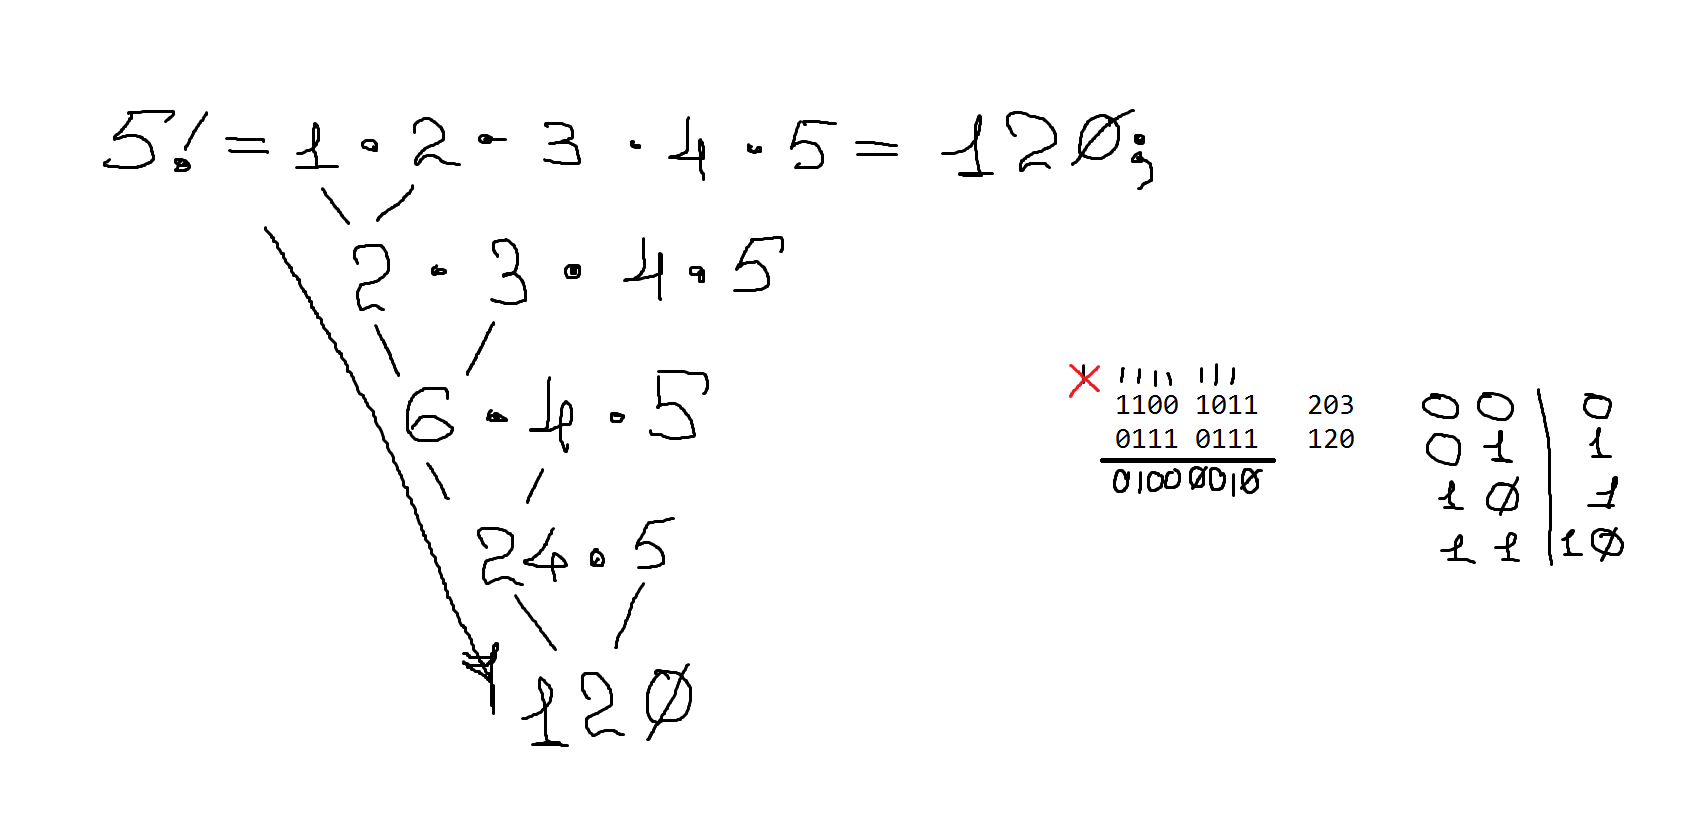 5! = 1 · 2 · 3 · 4 · 5 = 120;
2 · 3 · 4 · 5
6 · 4 · 5
24 · 5
120
1111 111
1100 1011 203
0111 0111 120
0100 0010
0 0 | 0
0 1 | 1
1 0 | 1
1 1 | 10